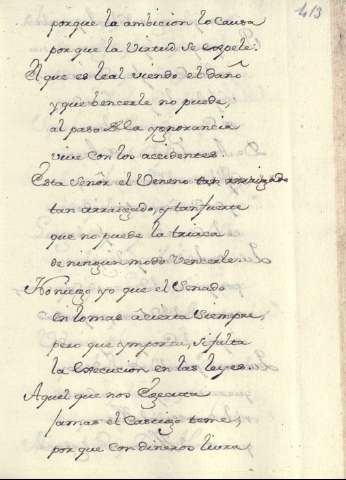 413
porque la ambicion lo causa
porque la Virtud se
El que es leal viendo el daño
y que bencerle no puede,
al paso de la ygnorancia
vive con los accidentes
Esta señor el Veneno tan arrigado
tan arraigado, y tan fuerte
que no puede la triaca
de ningun modo Vencerle
No niego yo que el Senado
en lo mas acierta siempre,
pero que ymporta, si falta
la Execucion en las leyes.
Aquel que nos
jamas el Castigo teme,
por que con dineros